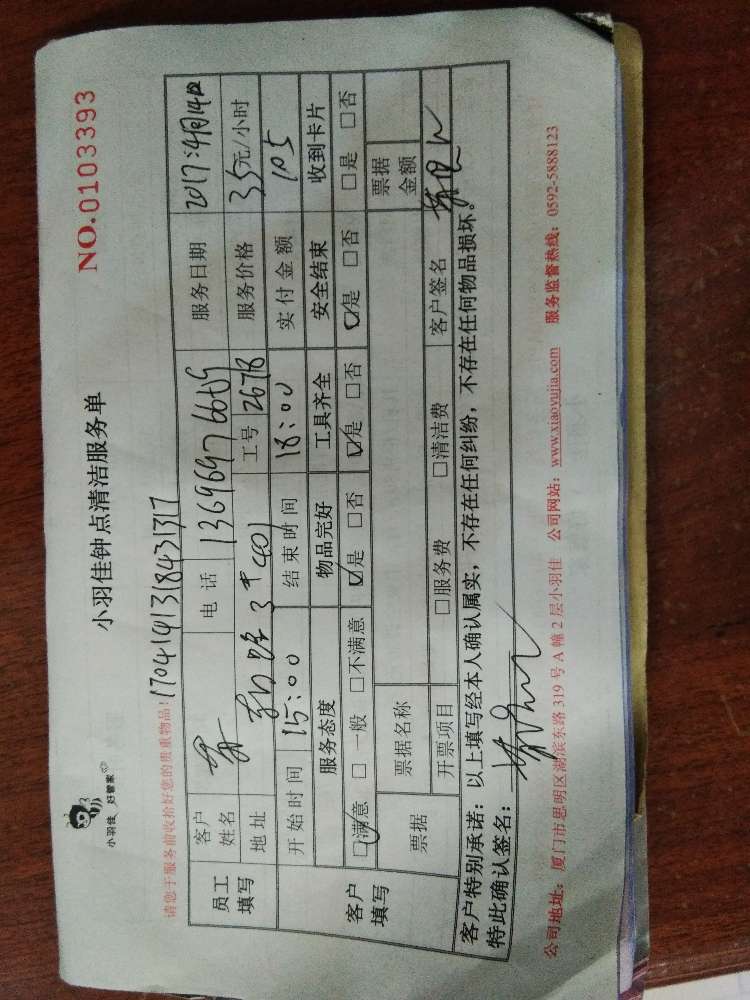 小羽佳 好管家
小羽佳钟点清洁服务单
NO.0103393
请您于服务前收拾好您的贵重物品!
1704141318431317
员工填写 客户姓名 电话 服务日期 2017.4月14日
地址 工号 2678 服务价格 35元/小时
开始时间 15:00 结束时间 18:00 实付金额 105
客户填写 服务态度 物品完好 工具齐全 安全结束 收到卡片
☑满意 □一般 □不满意 ☑是 □否 ☑是 □否 ☑是 □否 □是 □否
票据 票据名称 票据金额
开票项目 □服务费 □清洁费 客户签名
客户特别承诺:以上填写经本人确认属实,不存在任何纠纷,不存在任何物品损坏。
特此确认签名:
公司地址:厦门市思明区湖滨东路319号A幢2层小羽佳 公司网站:www.xiaoyujia.com 服务监督热线:0592-5888123